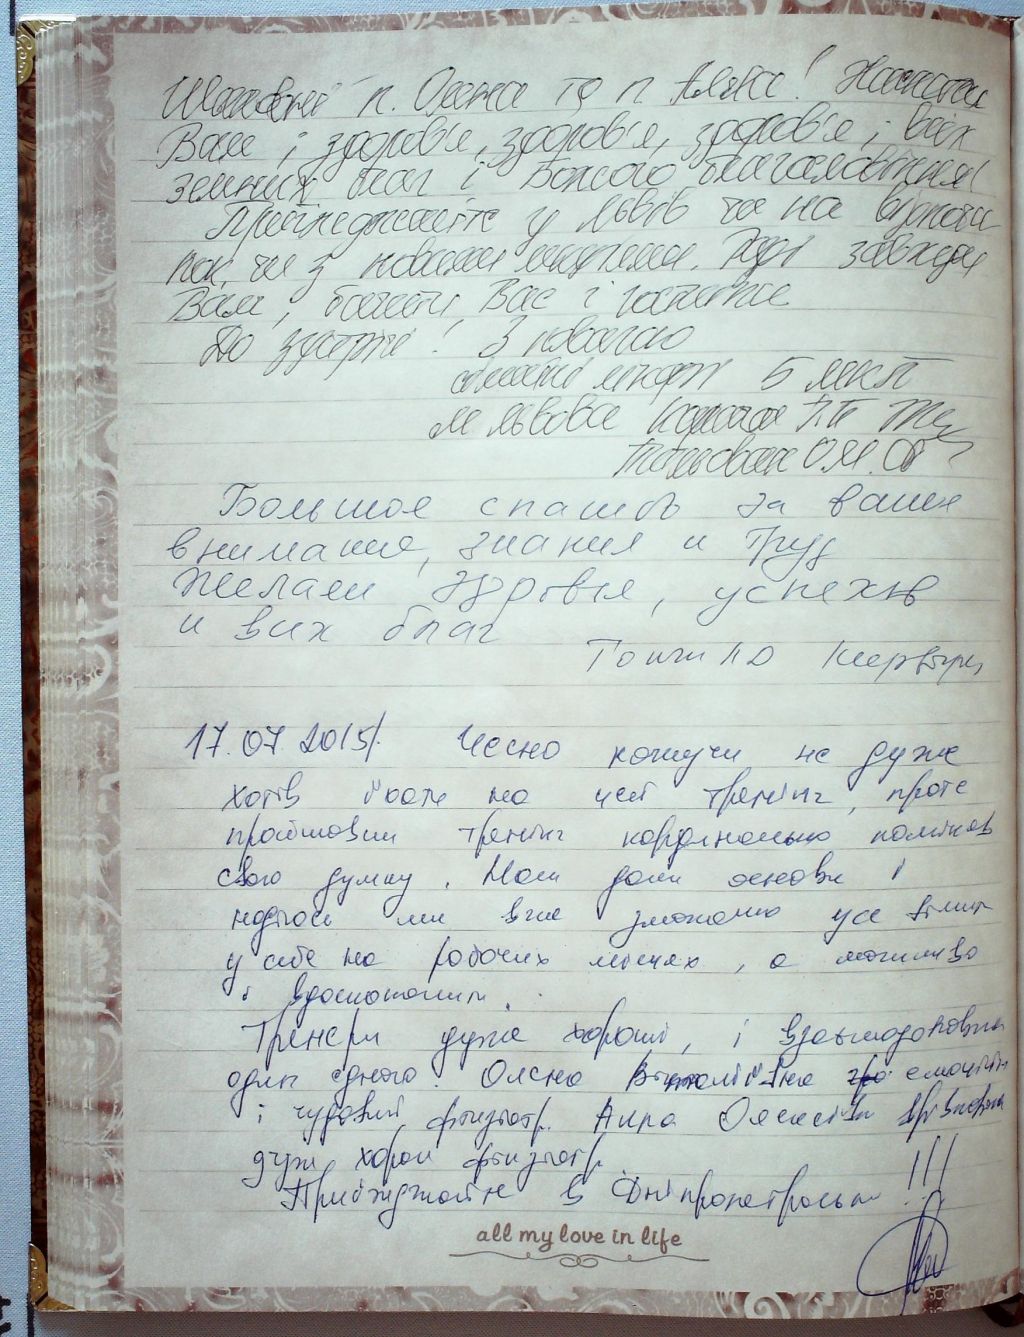 Шановні п. Олена та п. Аліна! Наснаги
Вам і здоров'я, здоров'я, здоров'я, і всіх
земних благ і Божого благословіння!
Приїжджайте у Львів чи на
чи з новими Раді завжди
Вам, бачити Вас і
До зустрічі! З повагою
5 МКЛ
м Львова
О.М.
Большое спасибо за ваше
внимание, знания и труд
Желаем здоровья, успехов
и всих благ
17.07.2015р. Чесно кажучи не дуже
хотів їхати на цей тренінг, проте
пройшовши тренінг кардинально поміняв
свою думку. Нам дали основи і
надіюсь ми вже зможемо усе
у себе на робочих місцях, а можливо
і вдосконалити.
Тренери дуже хороші, і взаємодоповнюють
один одного. Олена Віталіївна емоційна
і чудовий фтизіатр. Анна Олексіївна врівноважена
дуже хорош фтизіатр
Приїжджайте в Дніпропетровськ !!!
all my love in life